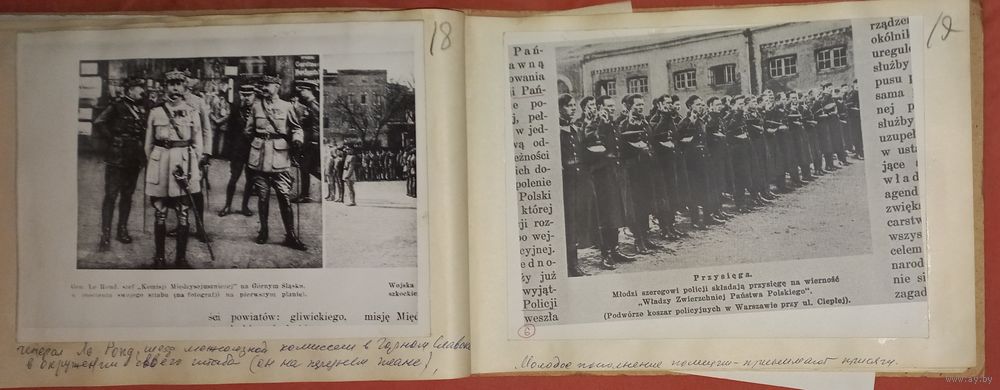 18
Gen. Le Rond, szef „Komisji Międzysojuszniczej” na Górnym Śląsku
w otoczeniu swego sztabu (na fotografji na pierwszym planie).
Wojska
szkockie
ści powiatów: gliwickiego,
misję Mię
генерал Ле Ронд, шеф межсоюзной комиссии в Горном
в окружении своего штаба (он на первом плане),
19
Pań-
awną
owania
i Pań-
e po-
j, peł-
w jed-
wą od-
eżności
ich do-
polenie
Polski
której
ji roz-
po wej-
cyjnej.
edno-
ży już
wyjąt-
Policji
weszła
6
Przysięga.
Młodzi szeregowi policji składają przysięgę na wierność
„Władzy Zwierzchniej Państwa Polskiego”.
(Podwórze koszar policyjnych w Warszawie przy ul. Ciepłej).
rządzei
okólnik
uregulo
służby
pusu p
sama
nej p
służby
uzupeł
w usta
jące
wład
agend
zwięk
carstw
wszys
celem
narod
nie si
zagad
Молодое пополнение полиции - принимают присягу.
www.ay.by